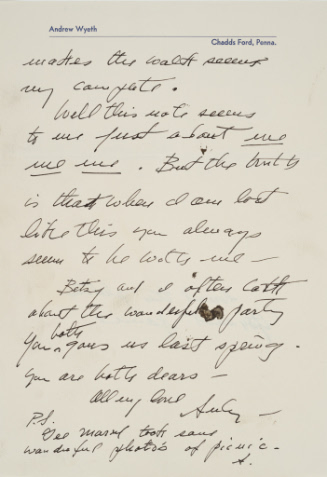 Andrew Wyeth
Chadds Ford, Penna.
makes the walk seem
my complete.
Well this note seems
to me just about me
me me. But the truth
is that when I am lost
like this you always
seem to be with me —
Betsy and I often talk
about the wonderful party
both
You gave us last spring.
You are both dears —
All my love
Andy —
P.S.
Gee Marvel took some
wonderful photos of picnic -
A.